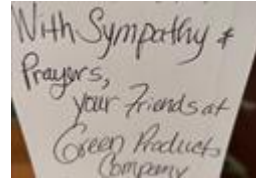 With Sympathy &
Prayers,
your Friends at
Green Products
Company